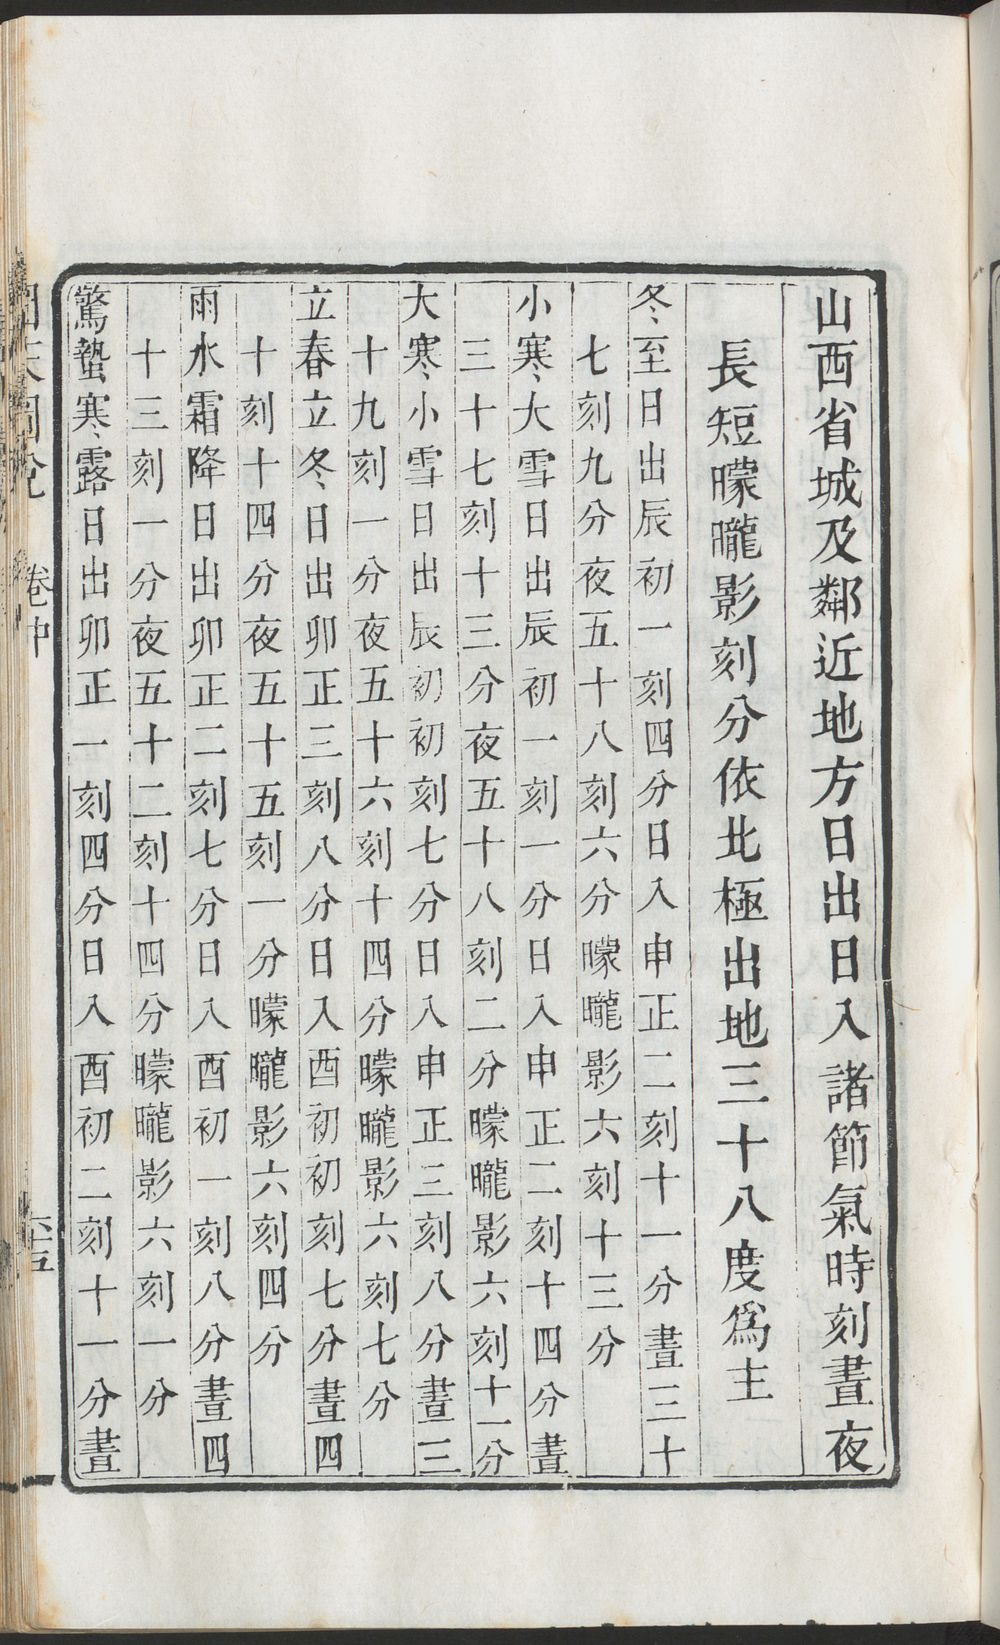 山西省城及鄰近地方日出日入諸節氣時刻晝夜
長短曚曨影刻分依北極出地三十八度爲主
冬至日出辰初一刻四分日入申正二刻十一分晝三十
七刻九分夜五十八刻六分曚曨影六刻十三分
小寒大雪日出辰初一刻一分日入申正二刻十四分晝
三十七刻十三分夜五十八刻二分曚曨影六刻十一分
大寒小雪日出辰初初刻七分日入申正三刻八分晝三
十九刻一分夜五十六刻十四分曚曨影六刻七分
立春立冬日出卯正三刻八分日入酉初初刻七分晝四
十刻十四分夜五十五刻一分曚曨影六刻四分
雨水霜降日出卯正二刻七分日入酉初一刻八分晝四
十三刻一分夜五十二刻十四分曚曨影六刻一分
驚蟄寒露日出卯正一刻四分日入酉初二刻十一分晝
卷中